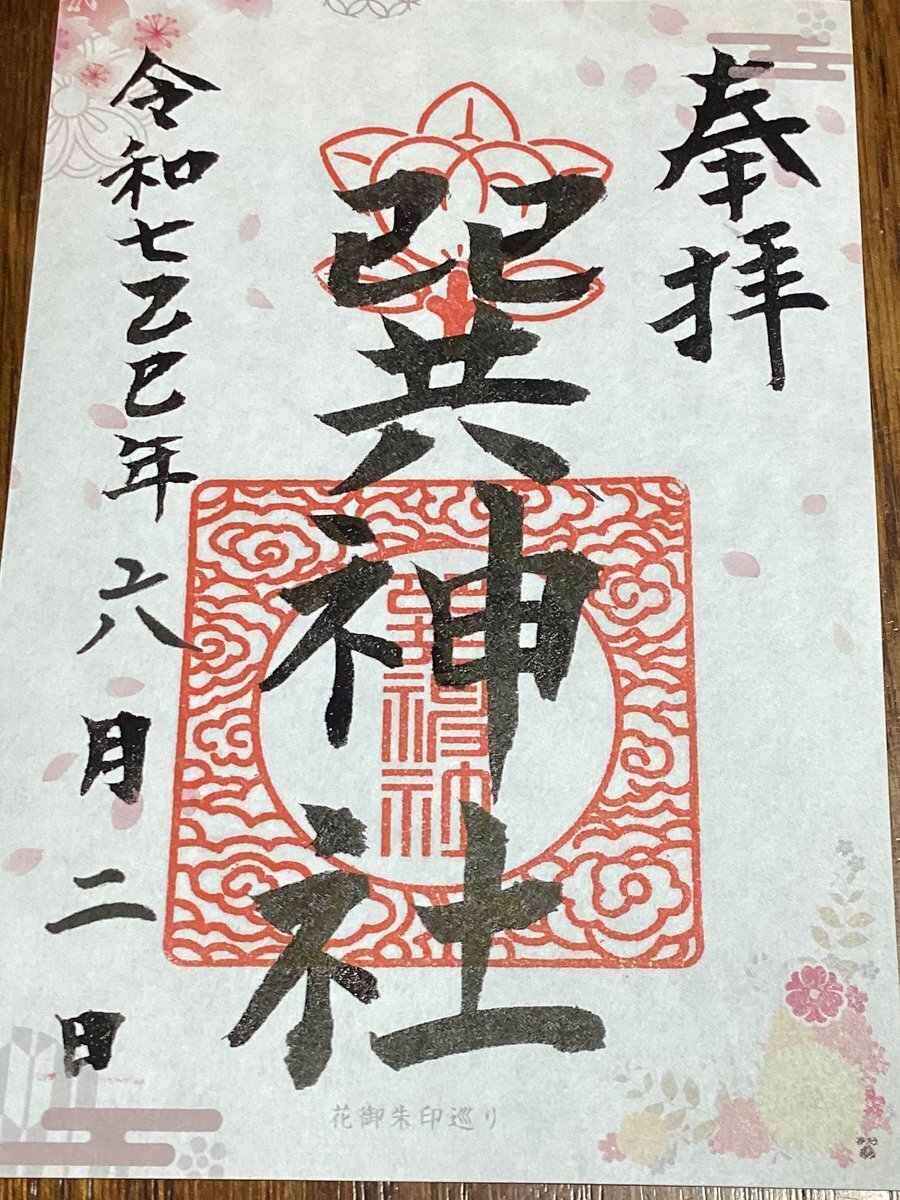 奉拝
巽神社
令和七乙巳年六月二日
巽神社
花御朱印巡り